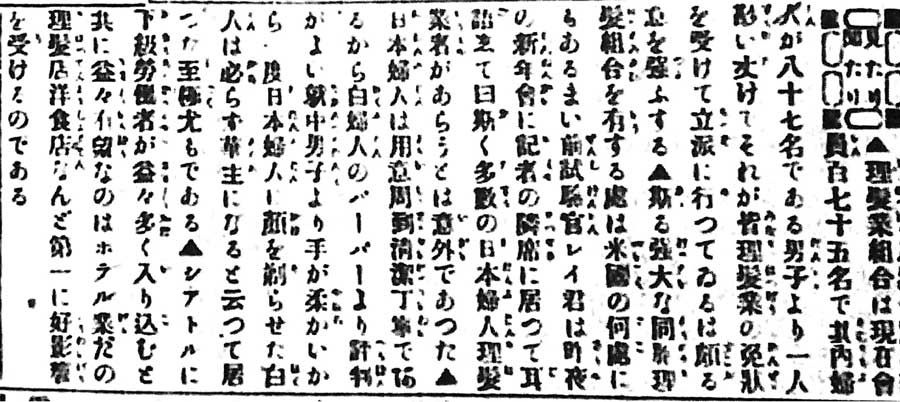 見たり
聞たり
▲理髮業組合は現在會
員百七十五名で其內婦
人が八十七名である男子より一人
尠い丈けでそれが皆理髮業の免狀
を受けて立派に行つてゐるは頗る
意を強ふする▲斯る強大な同胞理
髮組合を有する處は米國の何處に
もあるまい前試驗官レイ君は昨夜
の新年會に記者の隣席に居つて耳
語して曰斯く多數の日本婦人理髮
業者があらうとは意外であつた▲
日本婦人は用意周到淸潔丁寧で
るから白婦人のバーバーより評判
がよい就中男子より手が柔かいか
ら一度日本婦人に顏を剃らせた白
人は必らず華主になると云つて居
つた至極尤もである▲シアトルに
下級勞働者が益々多く入り込むと
共に益々有望なのはホテル業だの
理髮店洋食店なんど第一に好影響
を受けるのである